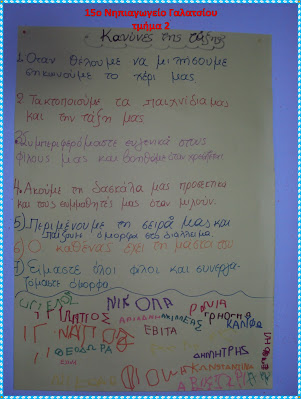 15ο Νηπιαγωγείο Γαλατσίου
τμήμα 2
Κανόνες της τάξης
1. Όταν θέλουμε να μιλήσουμε
σηκώνουμε το χέρι μας
2. Τακτοποιούμε τα παιχνίδια μας
και την τάξη μας
3. Συμπεριφερόμαστε ευγενικά στους
φίλους μας και βοηθάμε όταν
4. Ακούμε τη δασκάλα μας προσεκτικά
και τους συμμαθητές μας όταν μιλούν.
5) Περιμένουμε τη σειρά μας και
παίζουμε όμορφα στο διάλειμμα.
6) Ο καθένας έχει τη
7) Είμαστε όλοι φίλοι και συνεργα-
ζόμαστε όμορφα
ΝΙΚΟΛΑ
ΕΒΙΤΑ
ΘΕΟΔΩΡΑ
ΔΗΜΗΤΡΗΣ
ΚΩΝΣΤΑΝΤΙΝΑ